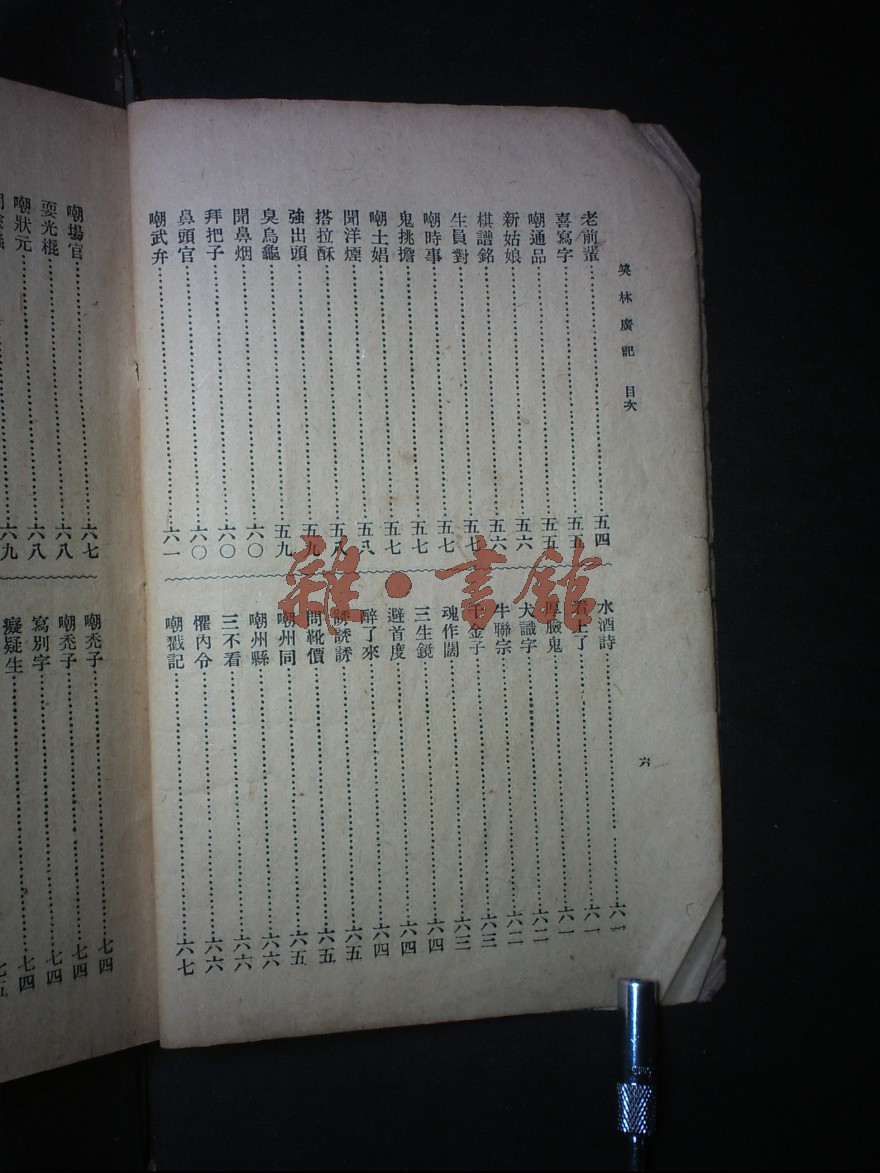 笑林廣記 目次
六
老前輩……五四
喜寫字……五五
嘲通品……五五
新姑娘……五六
棋譜銘……五六
生員對……五七
嘲時事……五七
鬼挑擔……五七
嘲土娼……五七
聞洋煙……五八
搭拉酥……五八
強出頭……五九
臭烏龜……五九
聞鼻烟……六〇
拜把子……六〇
鼻頭官……六〇
嘲武弁……六一
水酒詩……六一
上了……六一
厚臉鬼……六一
犬識字……六二
牛聯宗……六二
千金子……六三
魂作闊……六三
三生鏡……六四
避首度……六四
醉了來……六四
誘誘誘……六五
問靴價……六五
嘲州同……六五
嘲州縣……六六
三不看……六六
懼內令……六六
嘲戳記……六七
嘲場官……六七
耍光棍……六八
嘲狀元……六八
六九
嘲禿子……七四
嘲禿子……七四
寫別字……七四
癡疑生……七四
雜·書館